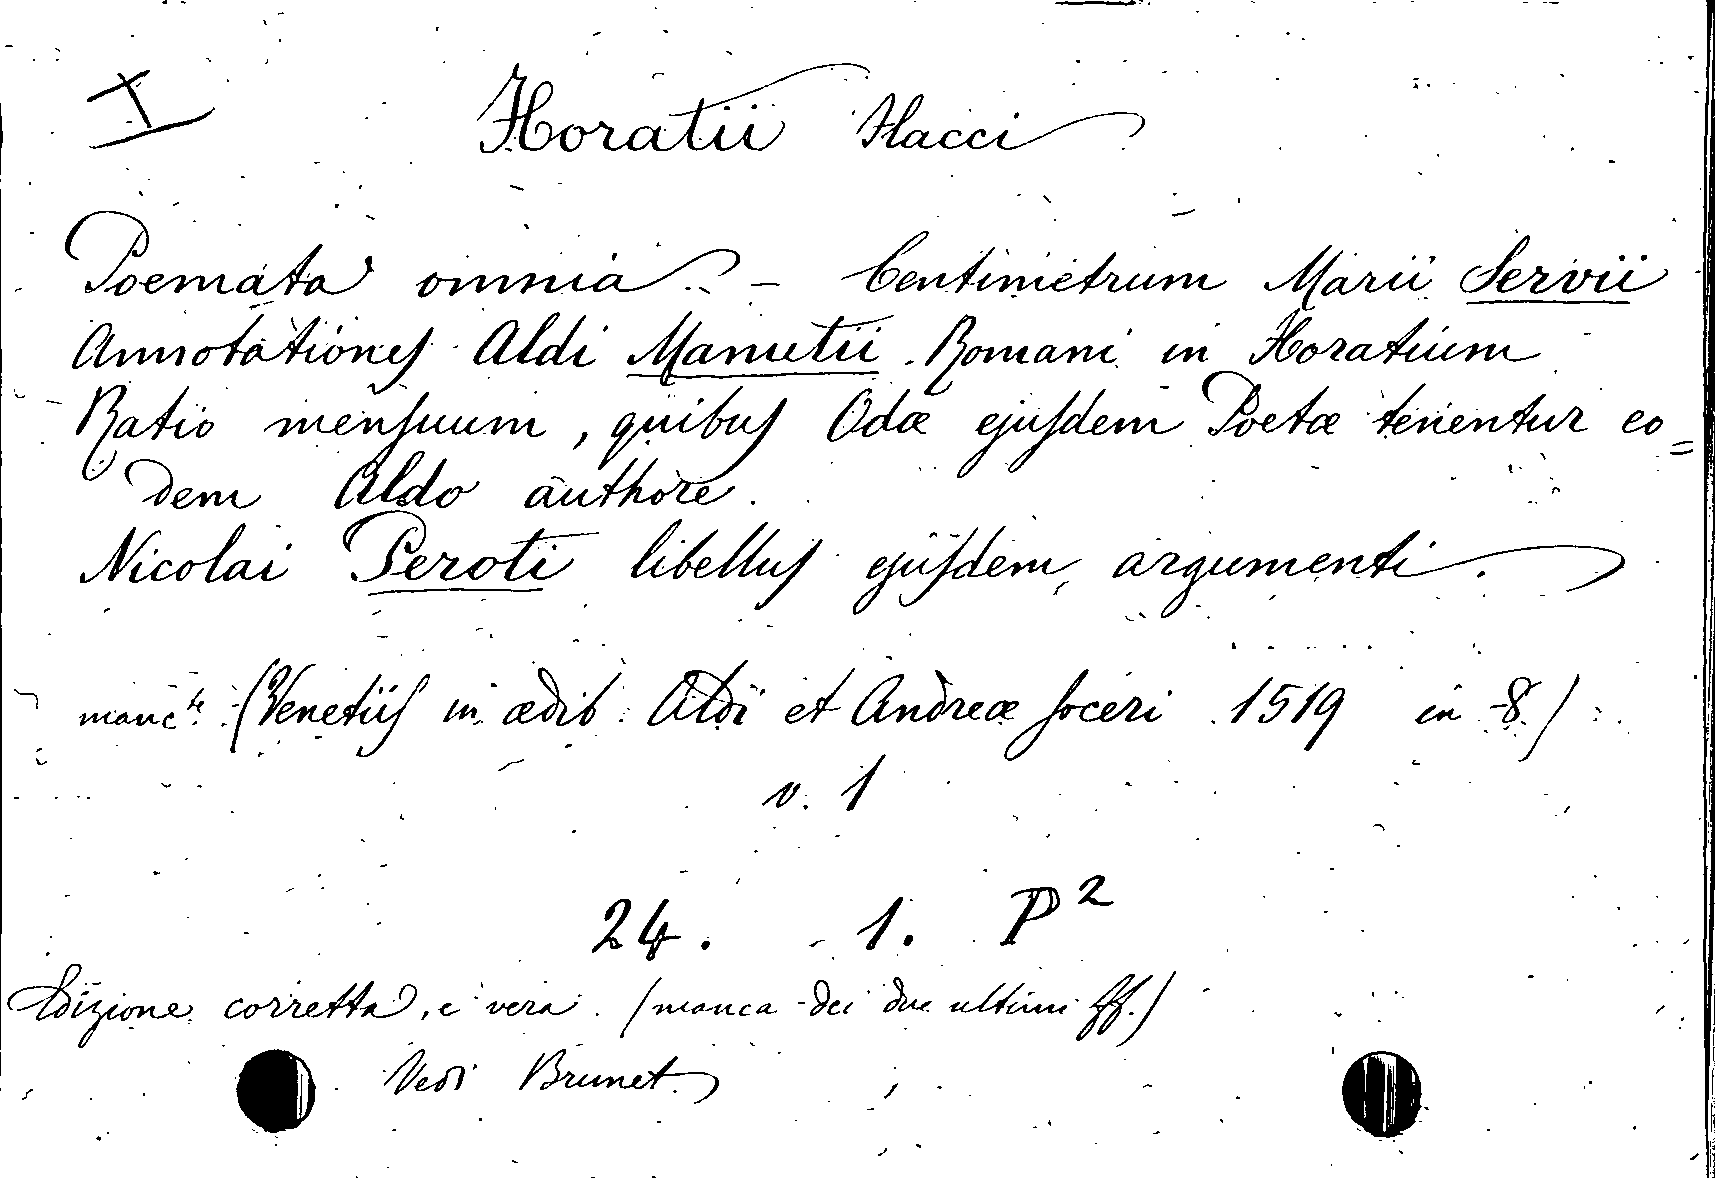 X
Horatii Flacci
Poemata omnia. - Centimetrum Marii Servii
Annotationes Aldi Manutii Romani in Horatium
Ratio mensuum, quibus Odæ ejusdem Poetæ tenentur eo=
dem Aldo authore.
Nicolai Peroti libellus ejusdem argumenti.
manc.te (Venetiis in ædib. Aldi et Andreæ soceri 1519 in-8.)
v. 1
24. 1. P2
Edizione corretta, e vera. (manca dei due ultimi ff.)
Vedi Brunet.